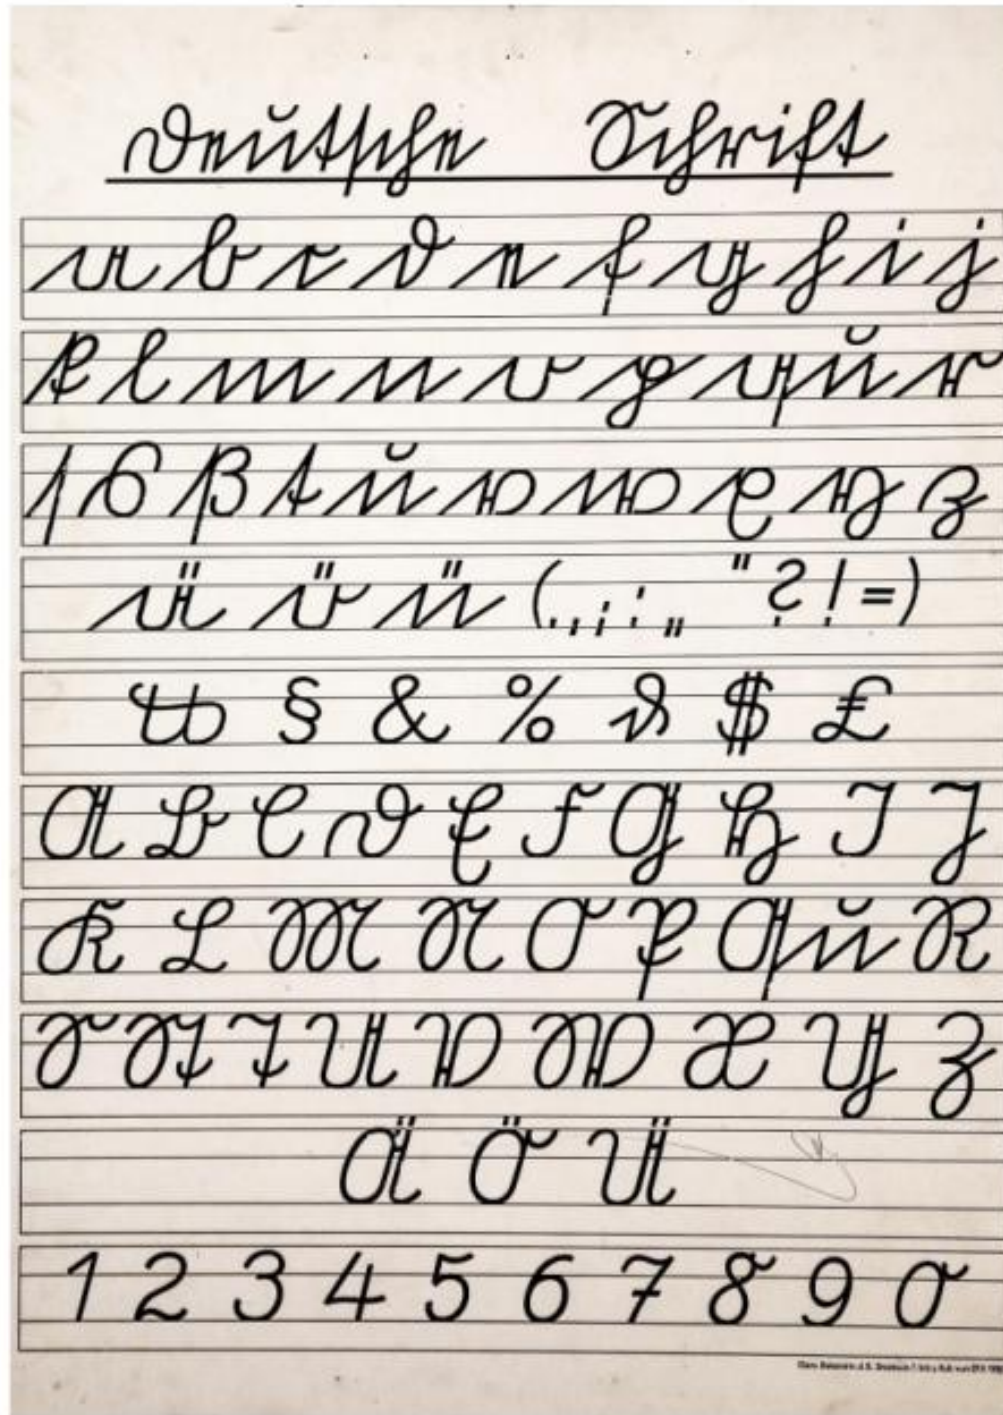 Deutsche Schrift
a b c d e f g h i j
k l m n o p qu r
ſ s ß t u v w x y z
ä ö ü (.,;:„ " ? ! =)
tz § & % ₰ $ £
A B C D E F G H I J
K L M N O P Qu R
S St T U V W X Y Z
Ä Ö Ü
1 2 3 4 5 6 7 8 9 0